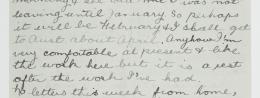 leaving until January so perhaps
it will be February & I shall get
to Aust about April. Anyhow I'm
very comfortable at present & like
the work here but it is a rest
after the work I've had.
letters this week from home,